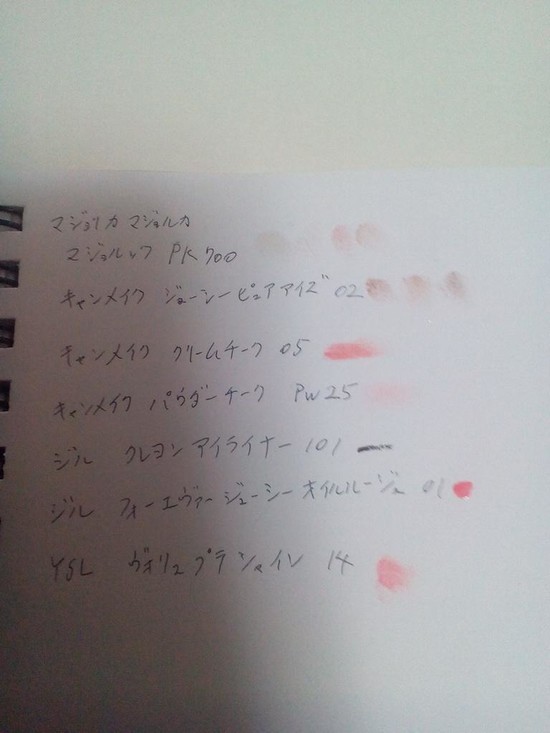 マジョリカ マジョルカ
マジョルック PK700
キャンメイク ジューシーピュアアイズ 02
キャンメイク クリームチーク 05
キャンメイク パウダーチーク PW25
ジル クレヨンアイライナー 101
ジル フォーエヴァージューシーオイルルージュ 01
YSL ヴォリュプテシャイン 14